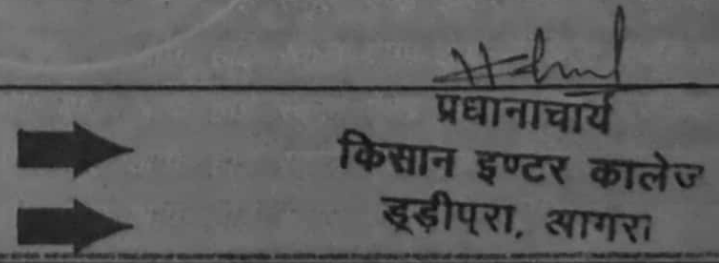 प्रधानाचार्य
किसान इण्टर कालेज
डूड़ीपुरा, आगरा